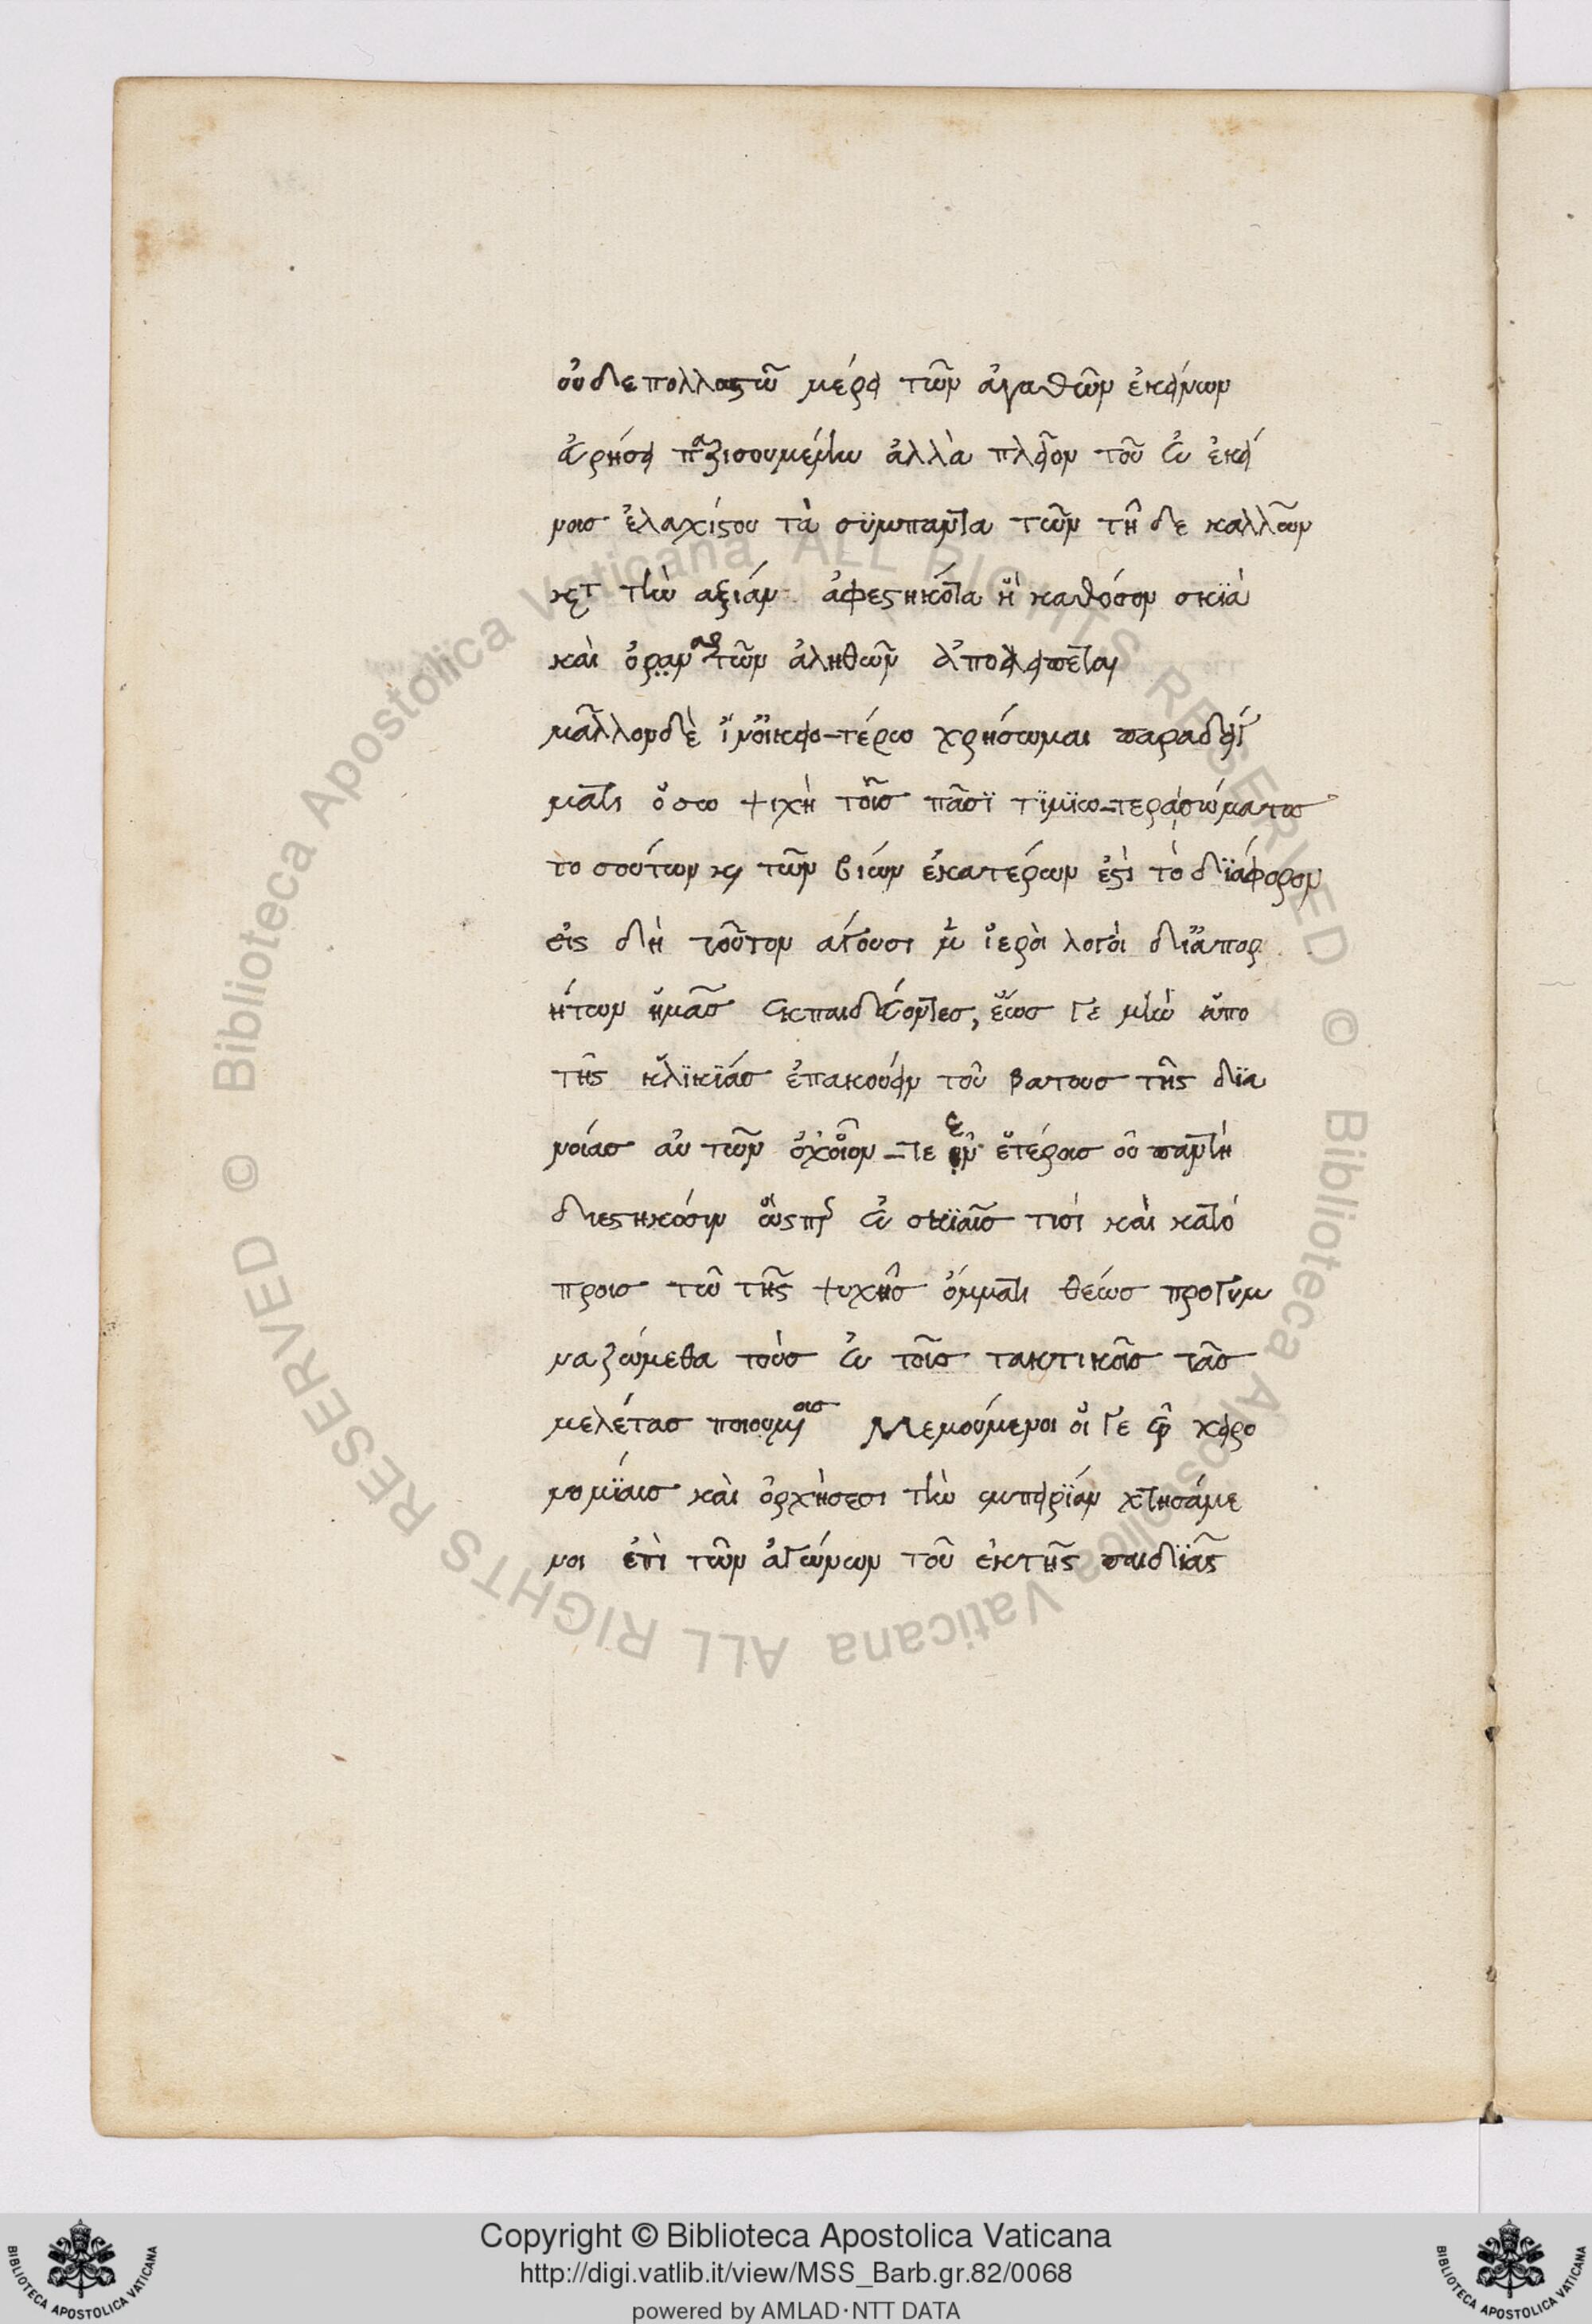 οὐδεπολλοστῶ μέρει τῶν ἀγαθῶν ἐκείνων
εὑρήσει παρισουμένην ἀλλὰ πλεῖον τοῦ ἐν ἐκεί
νοισ ἐλαχίστου τὰ σϋμπαντα τῶν τῆ δε καλλῶν
κατ τὴν αξιάν ἀφεστηκότα ἢ καθόσον σκϊὰ
και ὄραναρ τῶν ἀληθῶν ἀπολείπεται
μᾶλλονδὲ ἵν οἰκειοτέρω χρήσωμαι παραδείγ
ματι ὅσω ψιχὴ τοῖσ πᾶσϊ τϊμϊωτερασώματοσ
το σούτων και τῶν βιών ἑκατέρων ἐστὶ τὸ δϊάφορον
εἰς δὴ τοῦτον αγουσι μὲν ἱερὸι λογὸι δι ἀπορ
ήτων ἡμᾶσ εκπαιδεύοντεσ, ἕωσ γε μὴν ὑπο
τῆς ἡλϊκϊάσ ἐπακούειν τοῦ βατουσ τῆς δϊα
νοίασ αὐ τῶν ὀχοῖον τε ἐν ἑτέροισ οὐ παντὴ
διεστηκόσιν ὥσπερ ἐν σκϊαῖσ τισί και κατό
προισ τῶ τῆς ψυχῆσ ὄμματι θέωσ προγυμ
ναζώμεθα τοὺσ ἐν τοῖσ τακτικοῖσ τᾶσ
μελέτασ ποιουμένοισ Μεμούμενοι οἵ γε ἐν χειρο
νομϊαισ και ὀρχήσεσι τὴν εμπειρϊάν χτησάμε
νοι ἐπὶ τῶν ἀγώνων τοῦ ἐκτῆς παιδϊᾶς
Copyright © Biblioteca Apostolica Vaticana
http://digi.vatlib.it/view/MSS_Barb.gr.82/0068
powered by AMLAD·NTT DATA